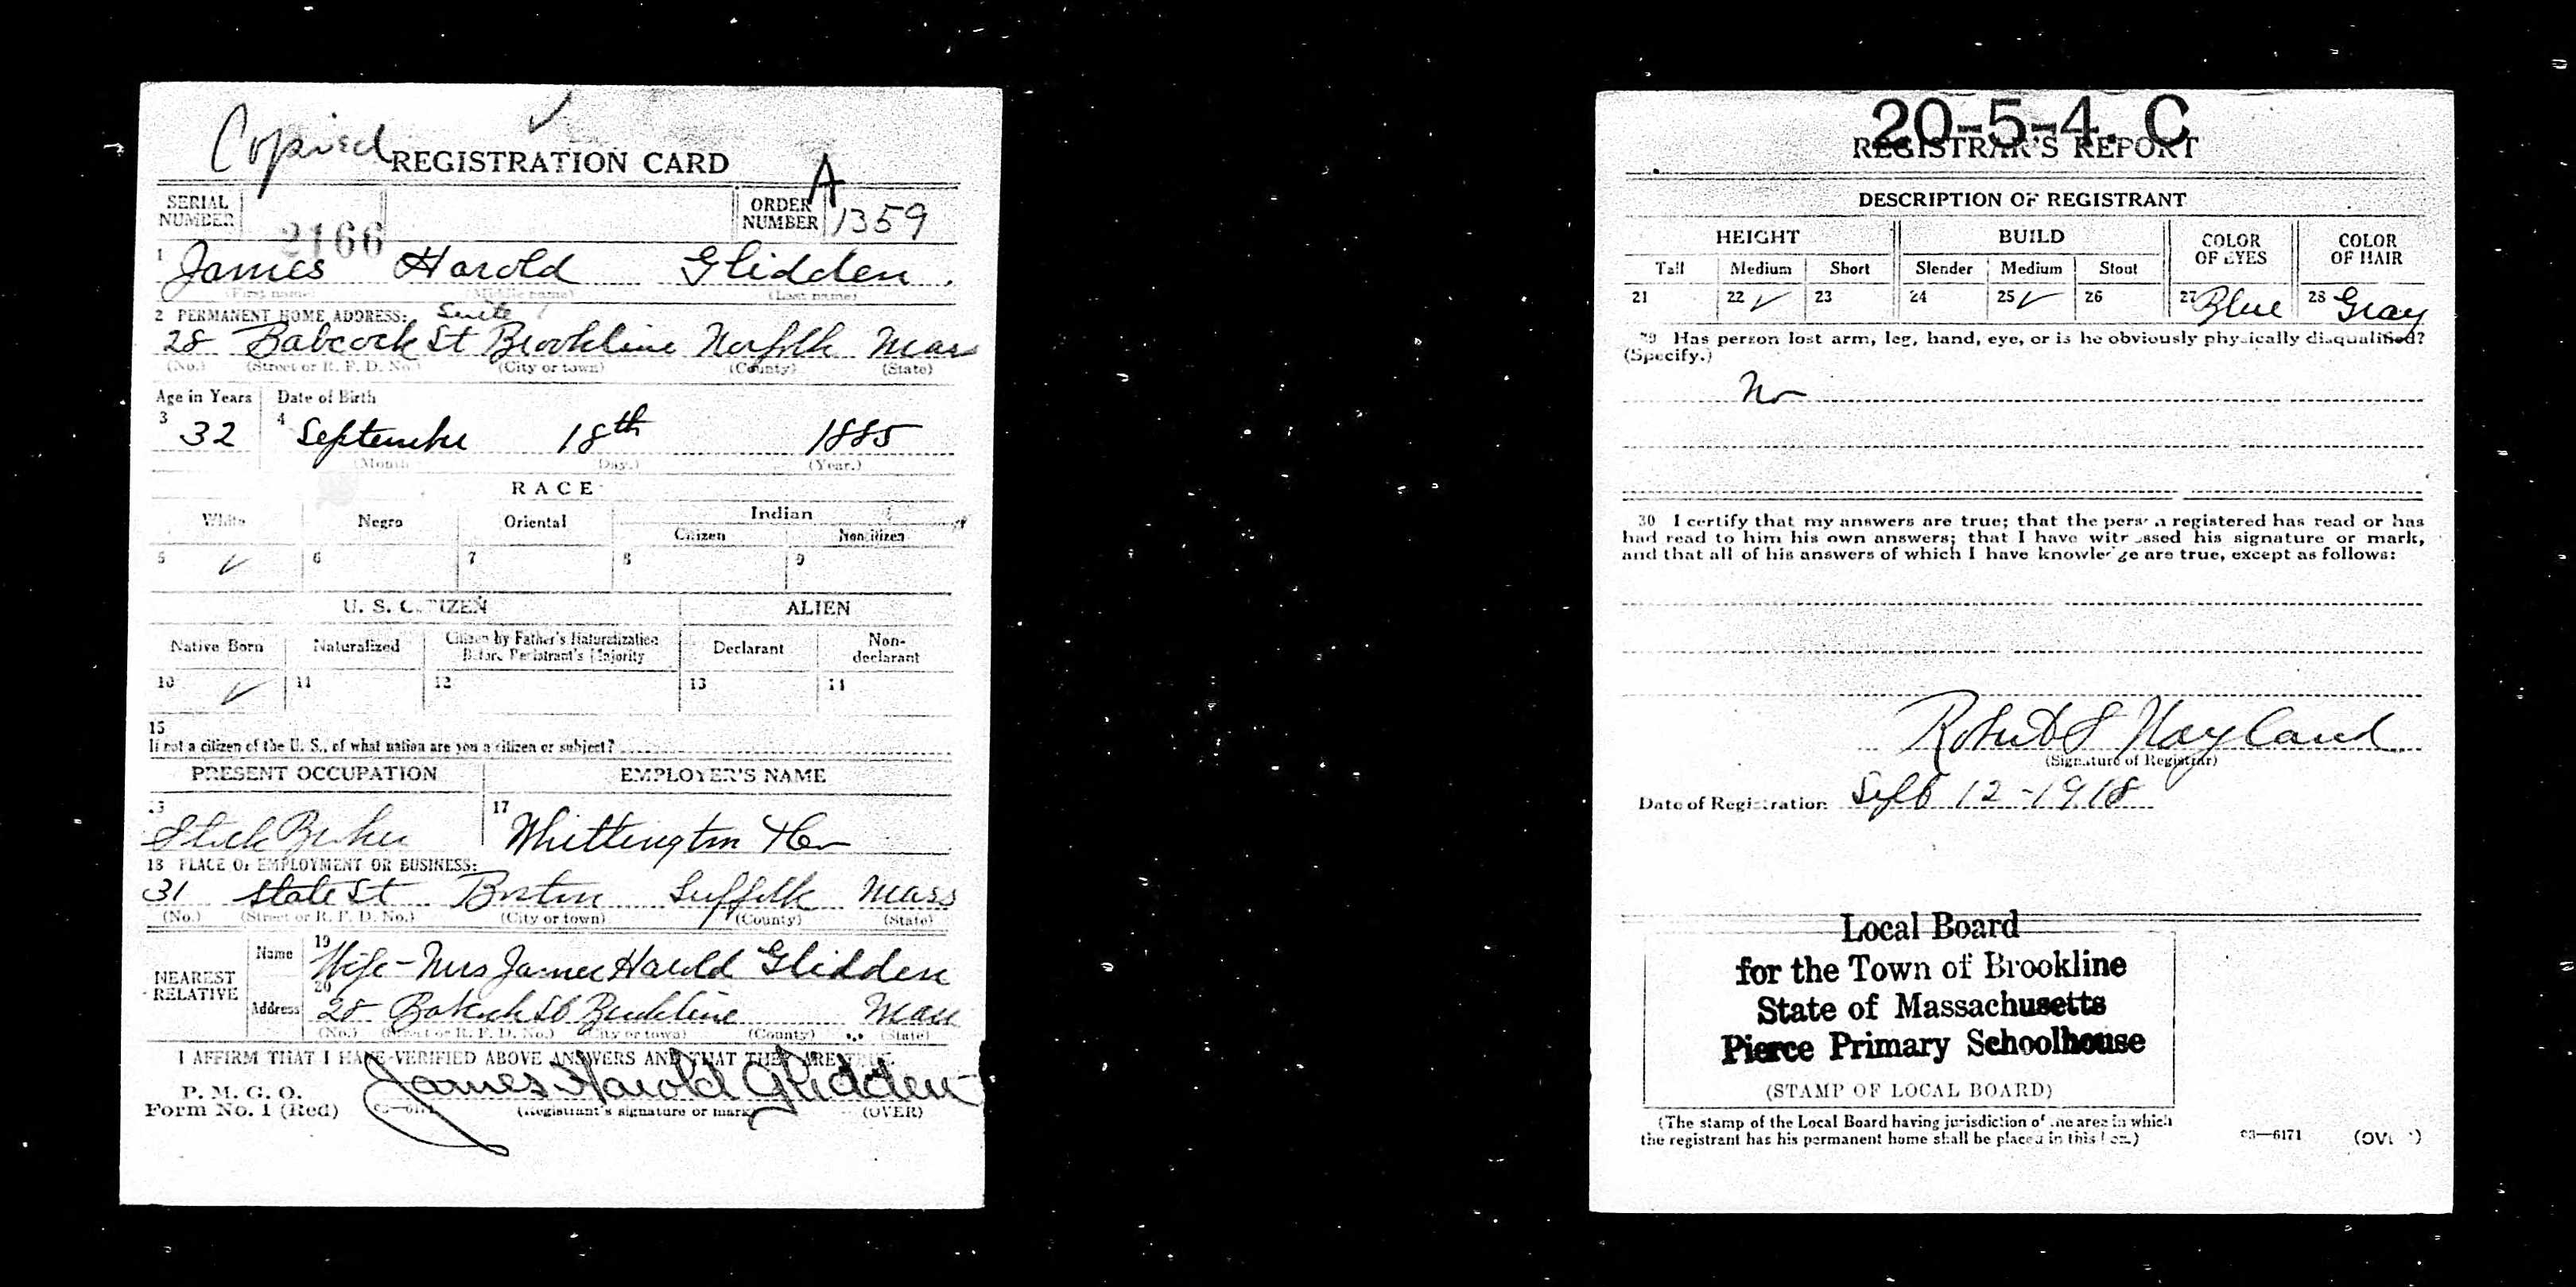 Copied
REGISTRATION CARD
SERIAL NUMBER 2166 ORDER NUMBER A 1359
1 James Harold Glidden.
(First name) (Middle name) (Last name)
2 PERMANENT HOME ADDRESS: Suite
28 Babcock St Brookline Norfolk Mass
(No.) (Street or R. F. D. No.) (City or town) (County) (State)
Age in Years Date of Birth
3 32 4 September 18th 1885
(Month) (Day.) (Year.)
RACE
White Negro Oriental Indian
Citizen Noncitizen
5 ✓ 6 7 8 9
U. S. CITIZEN ALIEN
Native Born Naturalized Citizen by Father's Naturalization Before Registrant's Majority Declarant Non-declarant
10 ✓ 11 12 13 14
15
If not a citizen of the U. S., of what nation are you a citizen or subject?
PRESENT OCCUPATION EMPLOYER'S NAME
Stock Broker 17 Whittington
18 PLACE OF EMPLOYMENT OR BUSINESS:
31 State St Boston Suffolk Mass
(No.) (Street or R. F. D. No.) (City or town) (County) (State)
NEAREST RELATIVE Name 19 Wife - Mrs James Harold Glidden
Address 20 28 Babcock St Brookline Mass
(No.) (Street or R. F. D. No.) (City or town) (County) (State)
I AFFIRM THAT I HAVE VERIFIED ABOVE ANSWERS AND THAT THEY ARE TRUE
P. M. G. O.
Form No. 1 (Red) 03—6171 James Harold Glidden
(Registrant's signature or mark) (OVER)
20-5-4. C
REGISTRAR'S REPORT
DESCRIPTION OF REGISTRANT
HEIGHT BUILD COLOR OF EYES COLOR OF HAIR
Tall Medium Short Slender Medium Stout
21 22 ✓ 23 24 25 ✓ 26 27 Blue 28 Gray
29 Has person lost arm, leg, hand, eye, or is he obviously physically disqualified?
(Specify.)
No
30 I certify that my answers are true; that the person registered has read or has
had read to him his own answers; that I have witnessed his signature or mark,
and that all of his answers of which I have knowledge are true, except as follows:
Robert S Wayland
(Signature of Registrar)
Date of Registration Sept 12-1918
Local Board
for the Town of Brookline
State of Massachusetts
Pierce Primary Schoolhouse
(STAMP OF LOCAL BOARD)
(The stamp of the Local Board having jurisdiction of the area in which
the registrant has his permanent home shall be placed in this box.)
03—6171 (OVER)